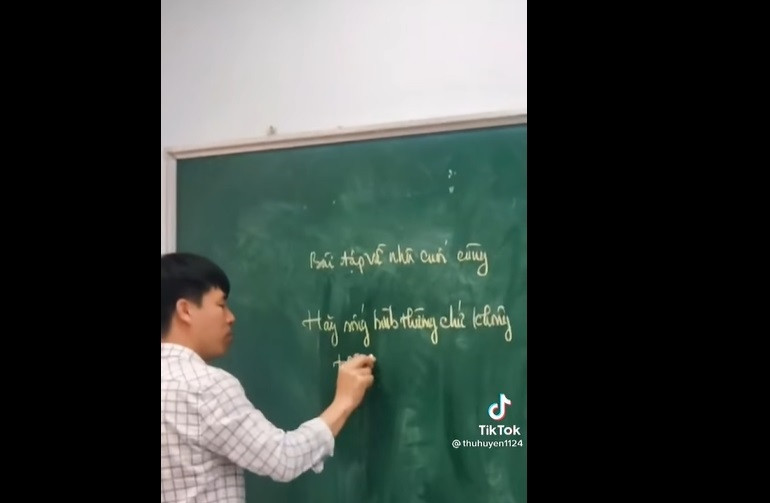 Bài tập về nhà cuối cùng
Hãy sống bình thường chứ không
TikTok
@thuhuyen1124